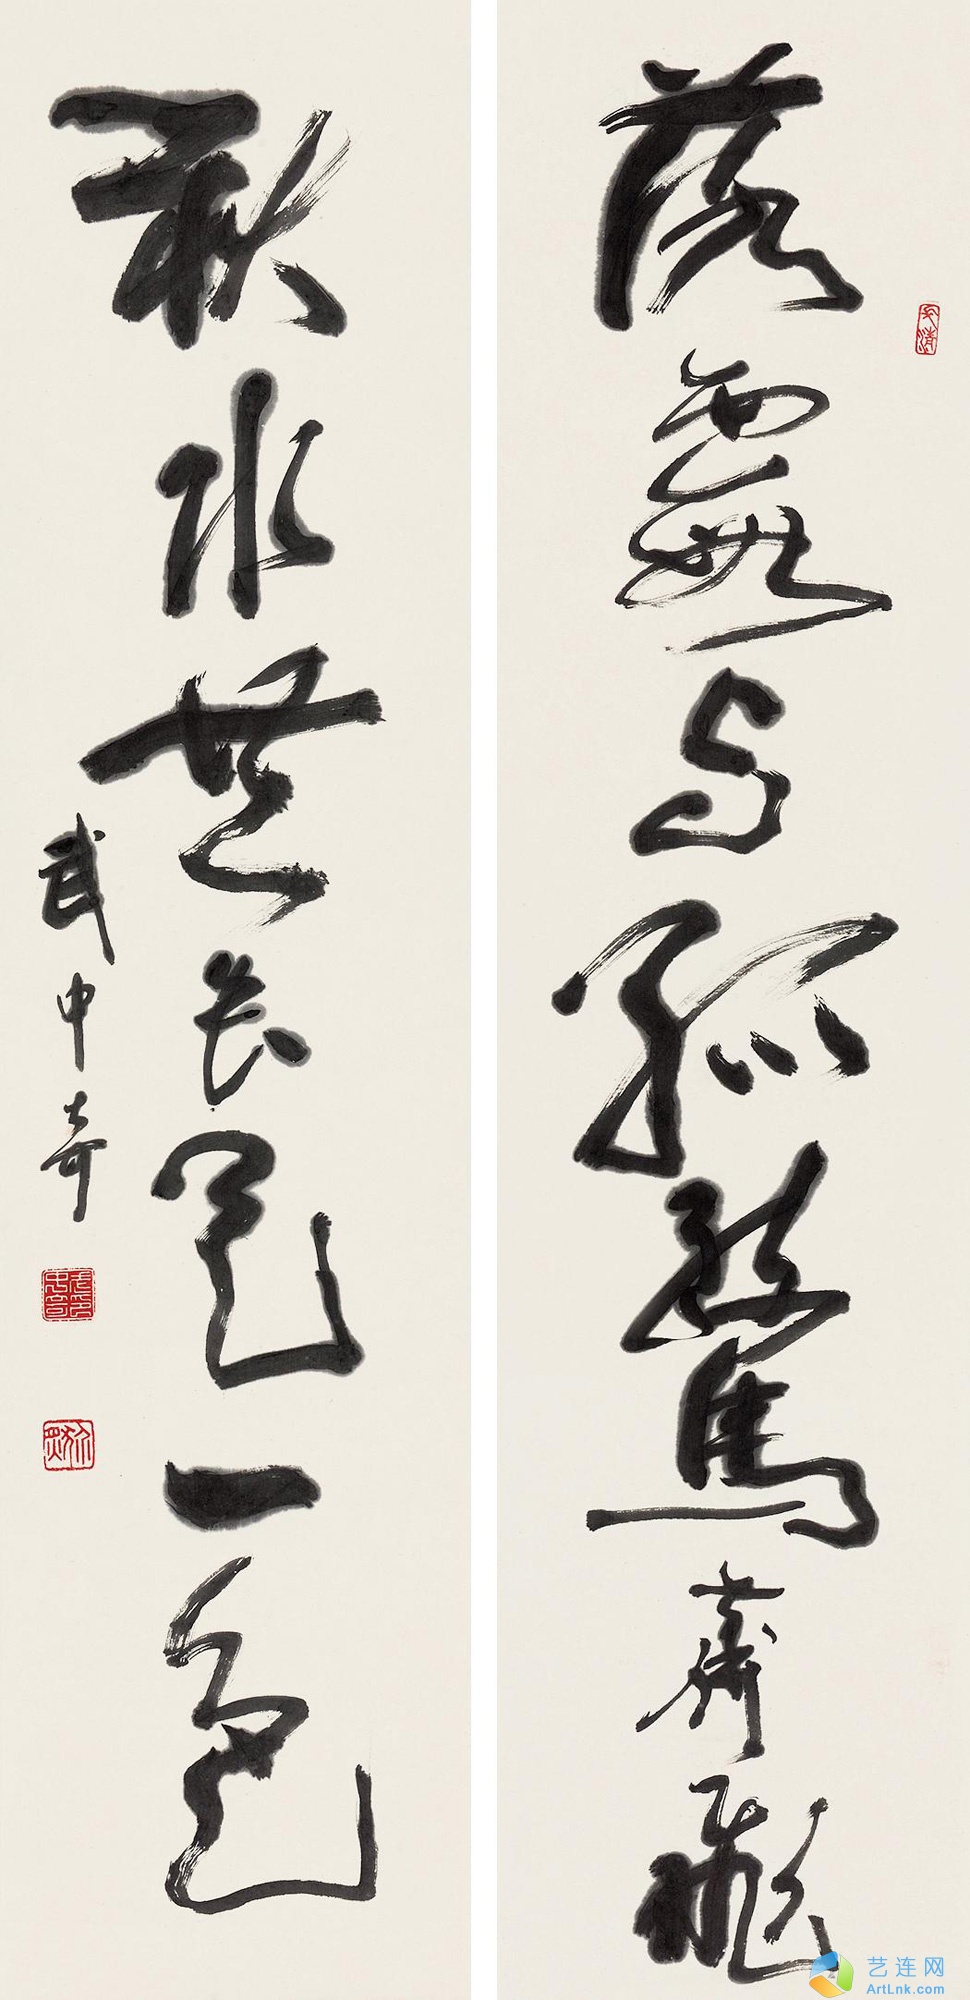 落霞与孤鶩齊飛
秋水共长天一色
武中奇
艺连网
ArtLnk.com